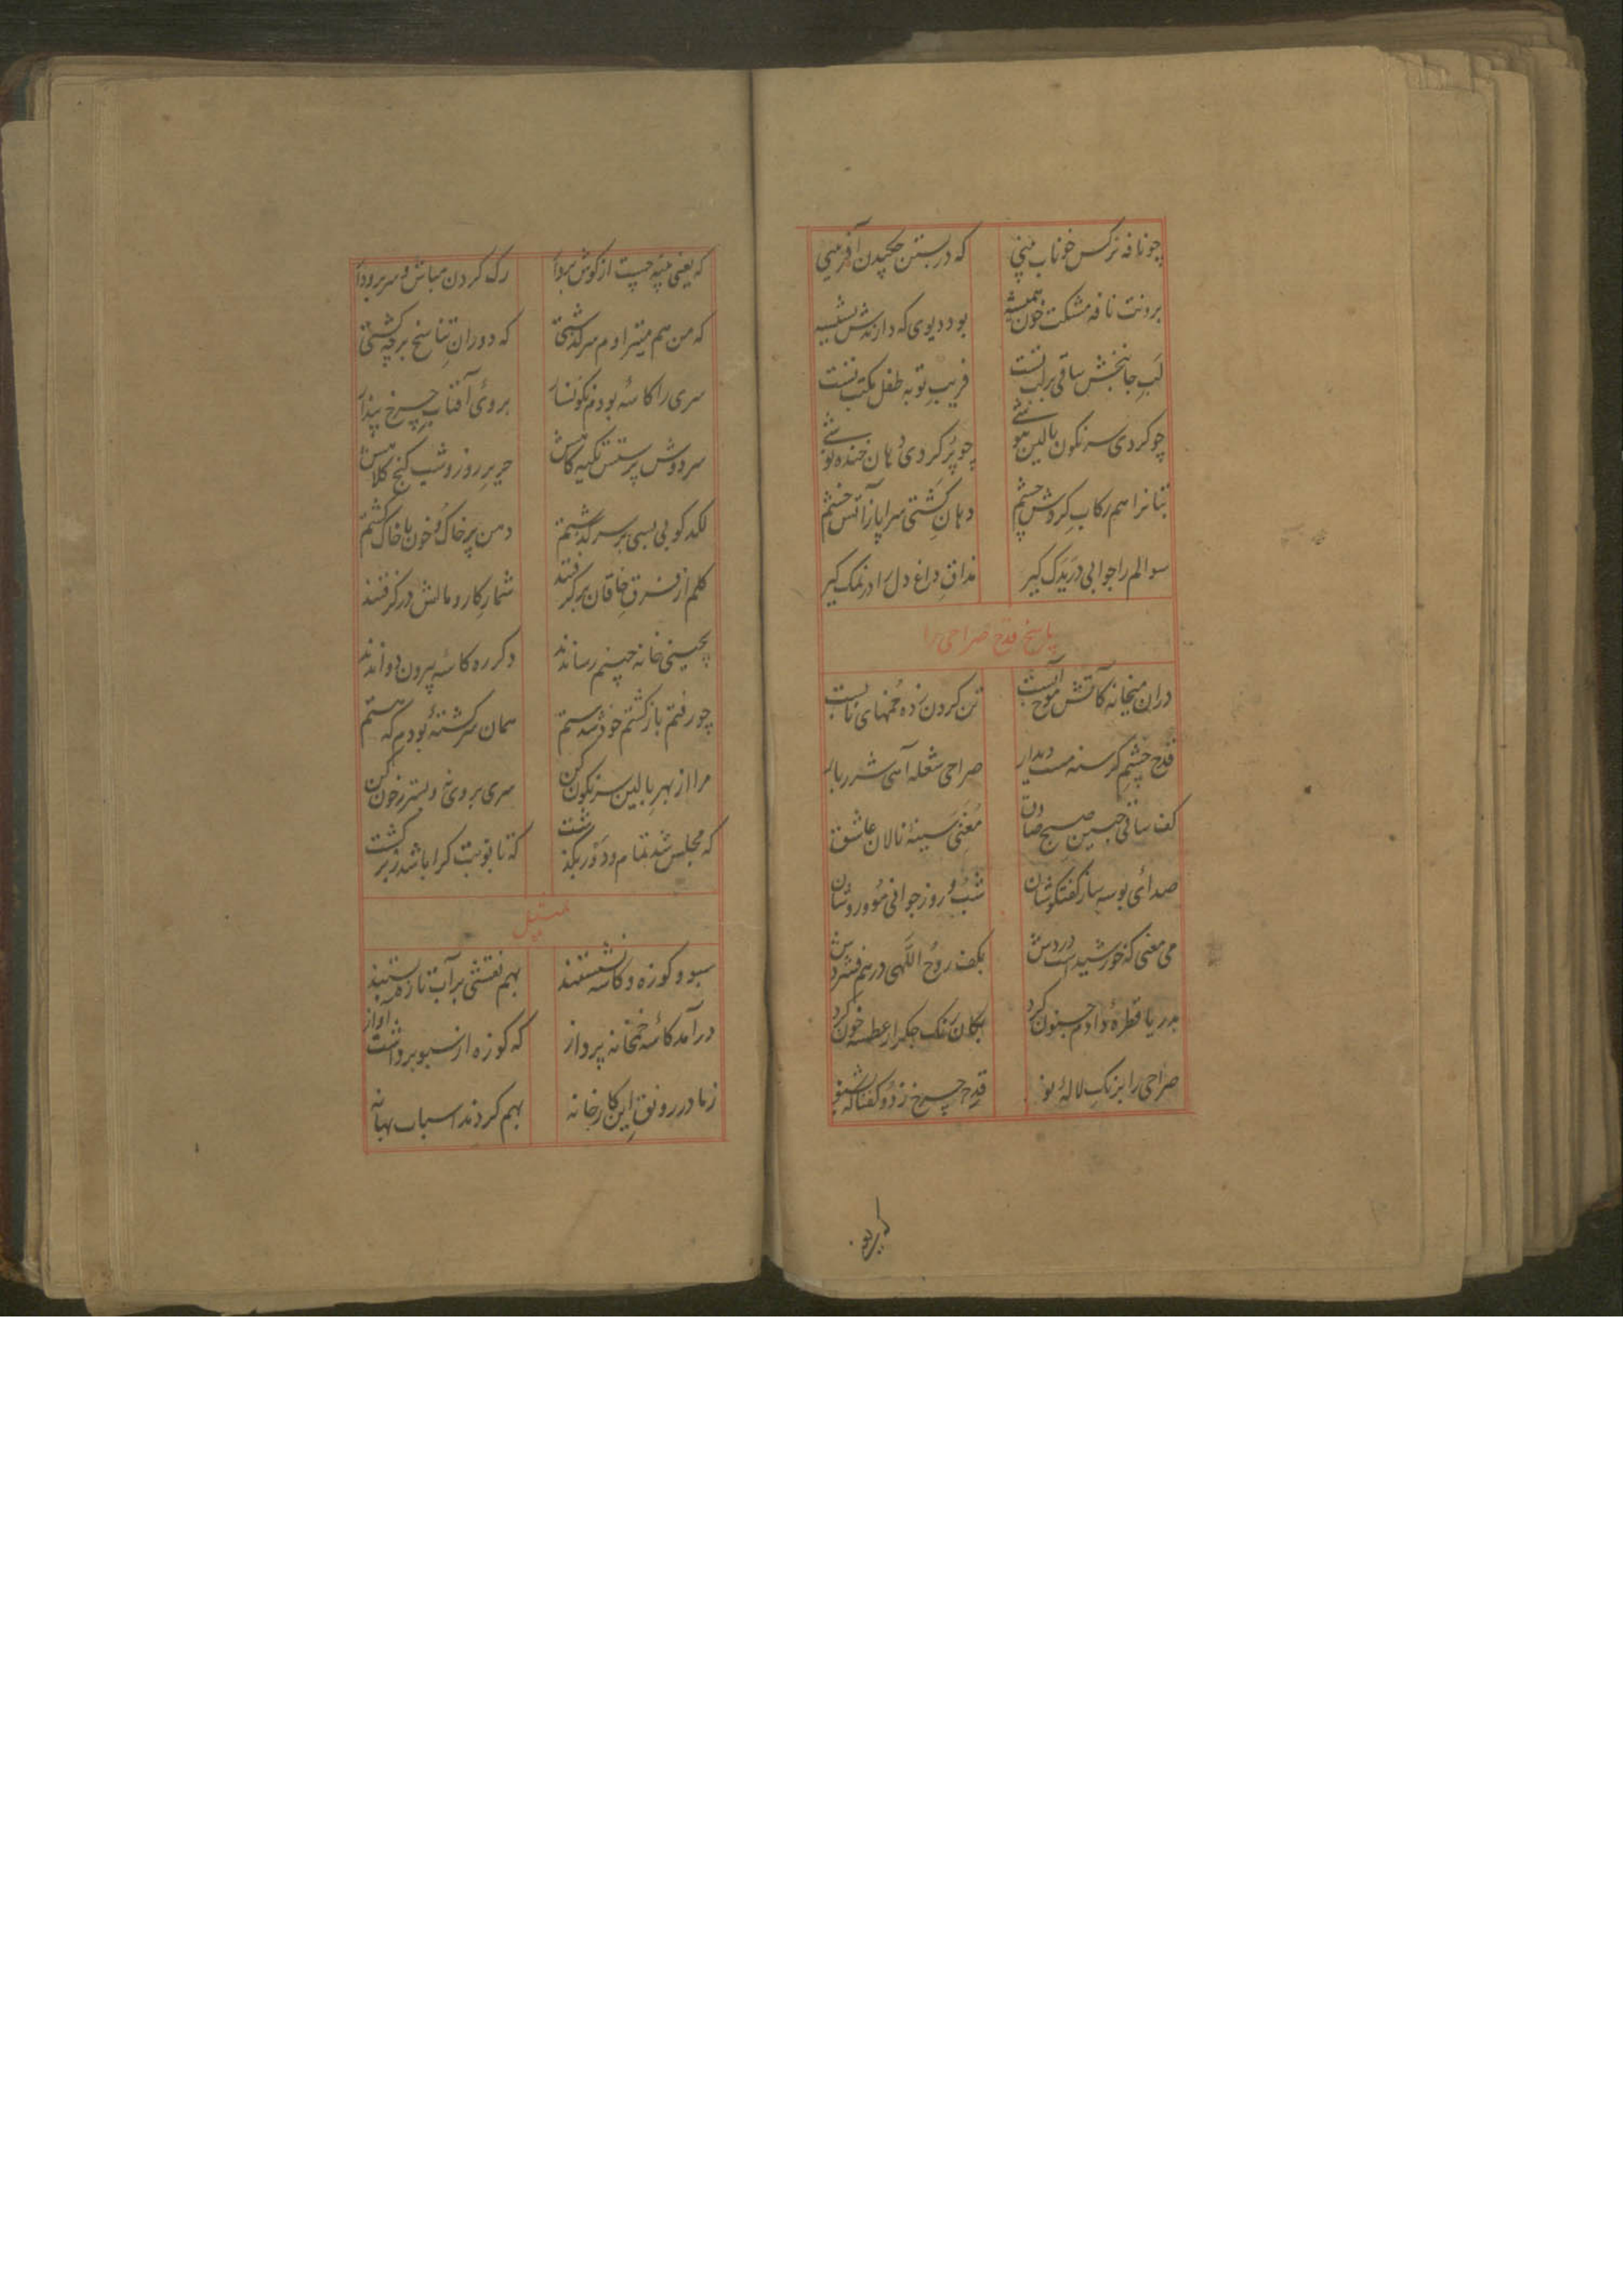 چو نافه نرکس خوناب بینی که در بستن چکیدن آفرینی
برونت نافه مشکت خون همیشه بود دیوی که دارندش بشیشه
لب جانبخش ساقی بر لب تست فریب توبه طفل مکتب تست
چو کردی سرنکون بالین هوشی چو پر کردی دهان خنده نوشی
بتانرا هم رکاب کردش چشم دهان کشتی سراپا ز آتش خشم
سوالم را جوابی در یدک کیر مذاق داغ دل را در نمک کیر
پاسخ قدح صراحی را
دران میخانه کآتش موج آبست تن کردن زده خمهای نابست
قدح چشم کرسنه مست دیدار صراحی شعله آهی شرربار
کف ساقی جبین صبح صادق مغنی سینهٔ نالان عاشق
صدای بوسه ساز کفتکوشان شب و روز جوانی مو و روشان
می معنی که خورشیدست دردش بکف روح اللهی در هم فشردش
بدریا قطرهٔ دادم جنون کرد بکان رنک جکر از عطسه خون کرد
صراحی را برنک لالهٔ نو قدح چرخ زد و کفتا که بشنو
که یعنی
که یعنی پنبه چیست از کوش بردار رک کردن مباش و سر برودار
که من هم میتراوم سرکذشتی که دوران تناسخ بر چه کشتی
سری را کاسهٔ بودم نکونسار بروی آفتاب چرخ بیدار
سر دوش پرستش تکیه کاهش حریر روز و شب کنج کلاهش
لکدکوبی بسی بر سر کذشتم دهن پر خاک و خون با خاک کشتم
کلم از فرق خاقان برکرفتند شمار کار و مالش درکرفتند
بچینی خانه چینم رساندند دکر ره کاسه بیرون دواندند
چو رفتم باز کشتم خود شدستم همان سرکشتهٔ بودم که هستم
مرا از بهر بالین سرنکون کن سری بر وی نه و بستر ز خون کن
که مجلس شد تمام و دور بکذشت که تا نوبت کرا باشد ز برکشت
تمثیل
سبو و کوزه و کاسه نشستند بهم نقشی بر آب تازه بستند
درآمد کاسهٔ خمخانه پرداز که کوزه از سبو برداشت آواز
زما در رونق این کارخانه بهم کردند اسباب بهانه